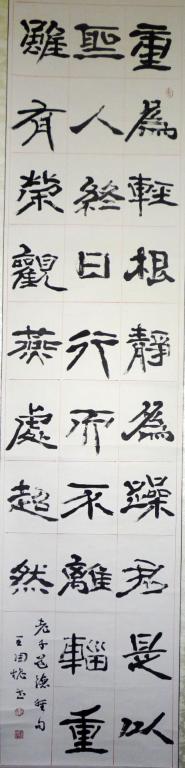 重為輕根靜為躁君是以
聖人終日行而不離輜重
雖有榮觀燕處超然
老子道德經句